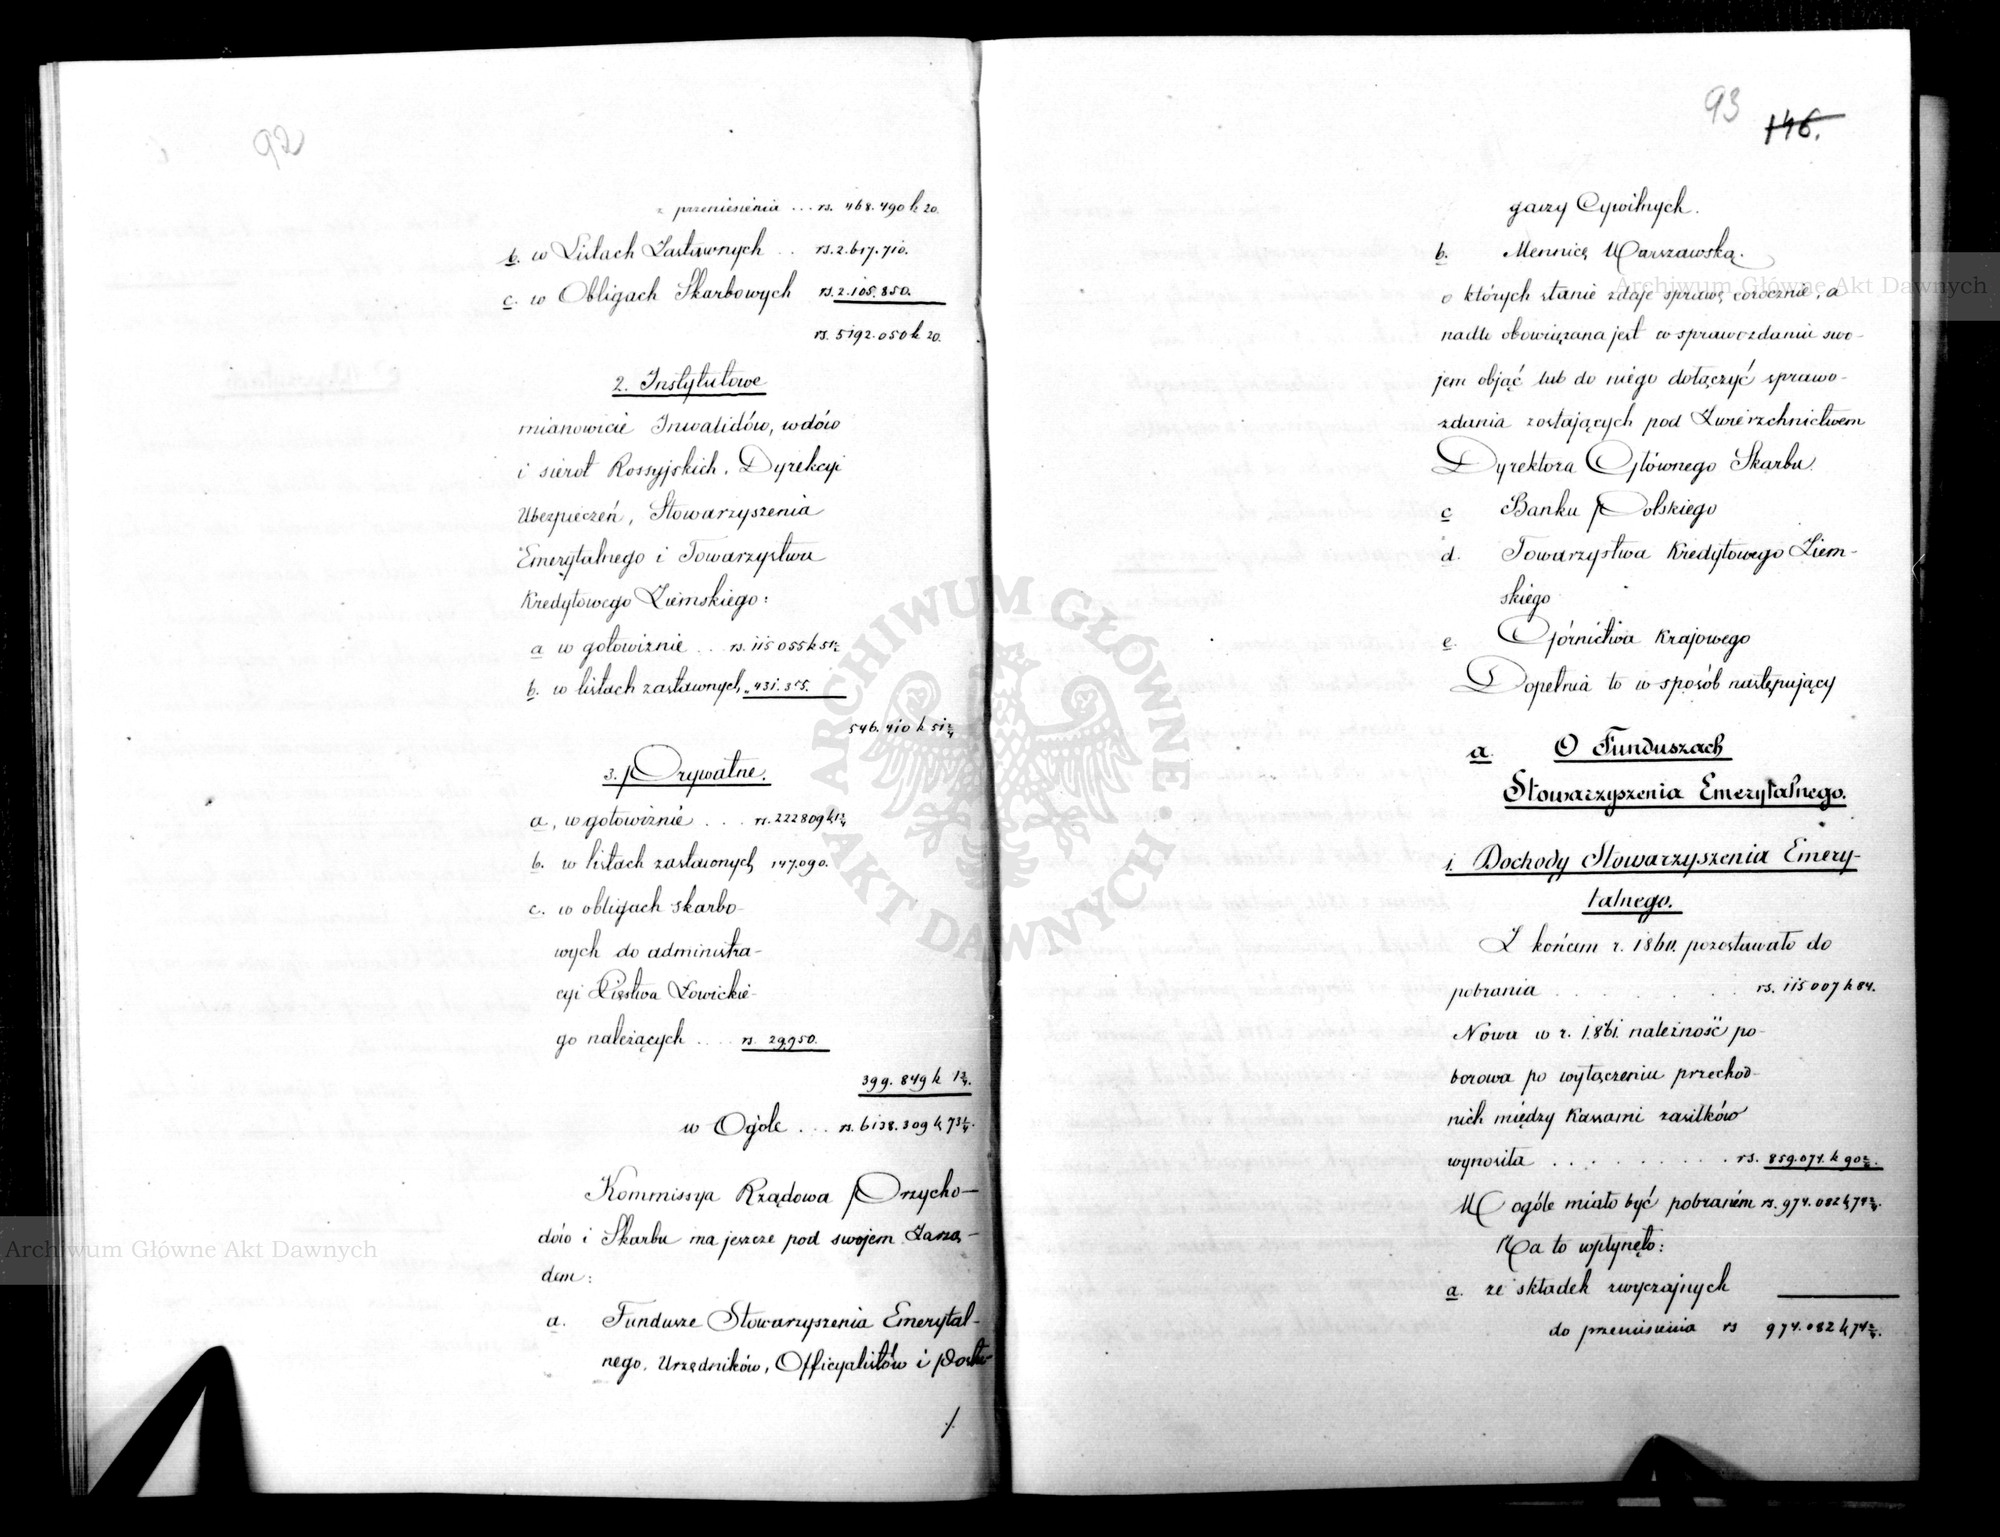 92
z przeniesienia ... rs. 468.490 k 20.
b. w Listach Zastawnych .. rs. 2.617.710.
c. w Obligach Skarbowych rs. 2.105.850.
rs. 5192.050 k 20.
2. Instytutowe
mianowicie Inwalidów, wdów
i sierot Rossyjskich, Dyrekcyi
Ubezpieczeń, Stowarzyszenia
Emerytalnego i Towarzystwa
Kredytowego Ziemskiego:
a w gotowiźnie ... rs. 115 055 k 51½
b. w listach zastawnych „ 431.355.
546.410 k 51 2/4
3. Prywatne.
a, w gotowiźnie ... rs. 222809 k 1¾
b. w listach zastawnych 147.090.
c. w obligach skarbo-
wych do administra-
cyi Xięstwa Łowickie-
go należących .... rs. 29.950.
399.849 k 1¾.
w Ogóle ... rs. 6138.309 k 73¼.
Kommissya Rządowa Przycho-
dów i Skarbu ma jeszcze pod swojem Zarzą-
dem:
a. Fundusze Stowarzyszenia Emerytal-
nego, Urzędników, Officyalistów i
/.
93
146.
garzy Cywilnych.
b. Mennicę Warszawską.
o których stanie zdaje sprawę corocznie, a
nadto obowiązana jest w sprawozdaniu swo-
jem objąć lub do niego dołączyć sprawo-
zdania zostających pod Zwierzchnictwem
Dyrektora Głównego Skarbu.
c Banku Polskiego
d. Towarzystwa Kredytowego Ziem-
skiego
e. Górnictwa Krajowego
Dopełnia to w sposób następujący
a. O Funduszach
Stowarzyszenia Emerytalnego.
1. Dochody Stowarzyszenia Emery-
talnego.
Z końcem r. 1860. pozostawało do
pobrania . . . . . . . . rs. 115 007 k 84.
Nowa w r. 1861. należność po-
borowa po wyłączeniu przechod-
nich między Kassami zasiłków
wynosiła . . . . . . . . rs. 859.074. k 90 2/4.
W ogóle miało być pobranem rs. 974.082 k 74 2/4.
Na to wpłynęło:
a. ze składek zwyczajnych
do przeniesienia rs 974.082 k 74 2/4.
ARCHIWUM GŁÓWNE AKT DAWNYCH
Archiwum Główne Akt Dawnych
Archiwum Główne Akt Dawnych